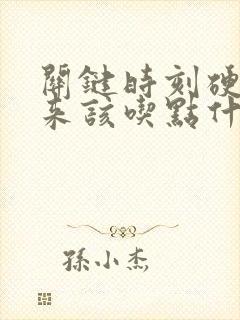 關鍵時刻硬
来該喫點什
孫小杰